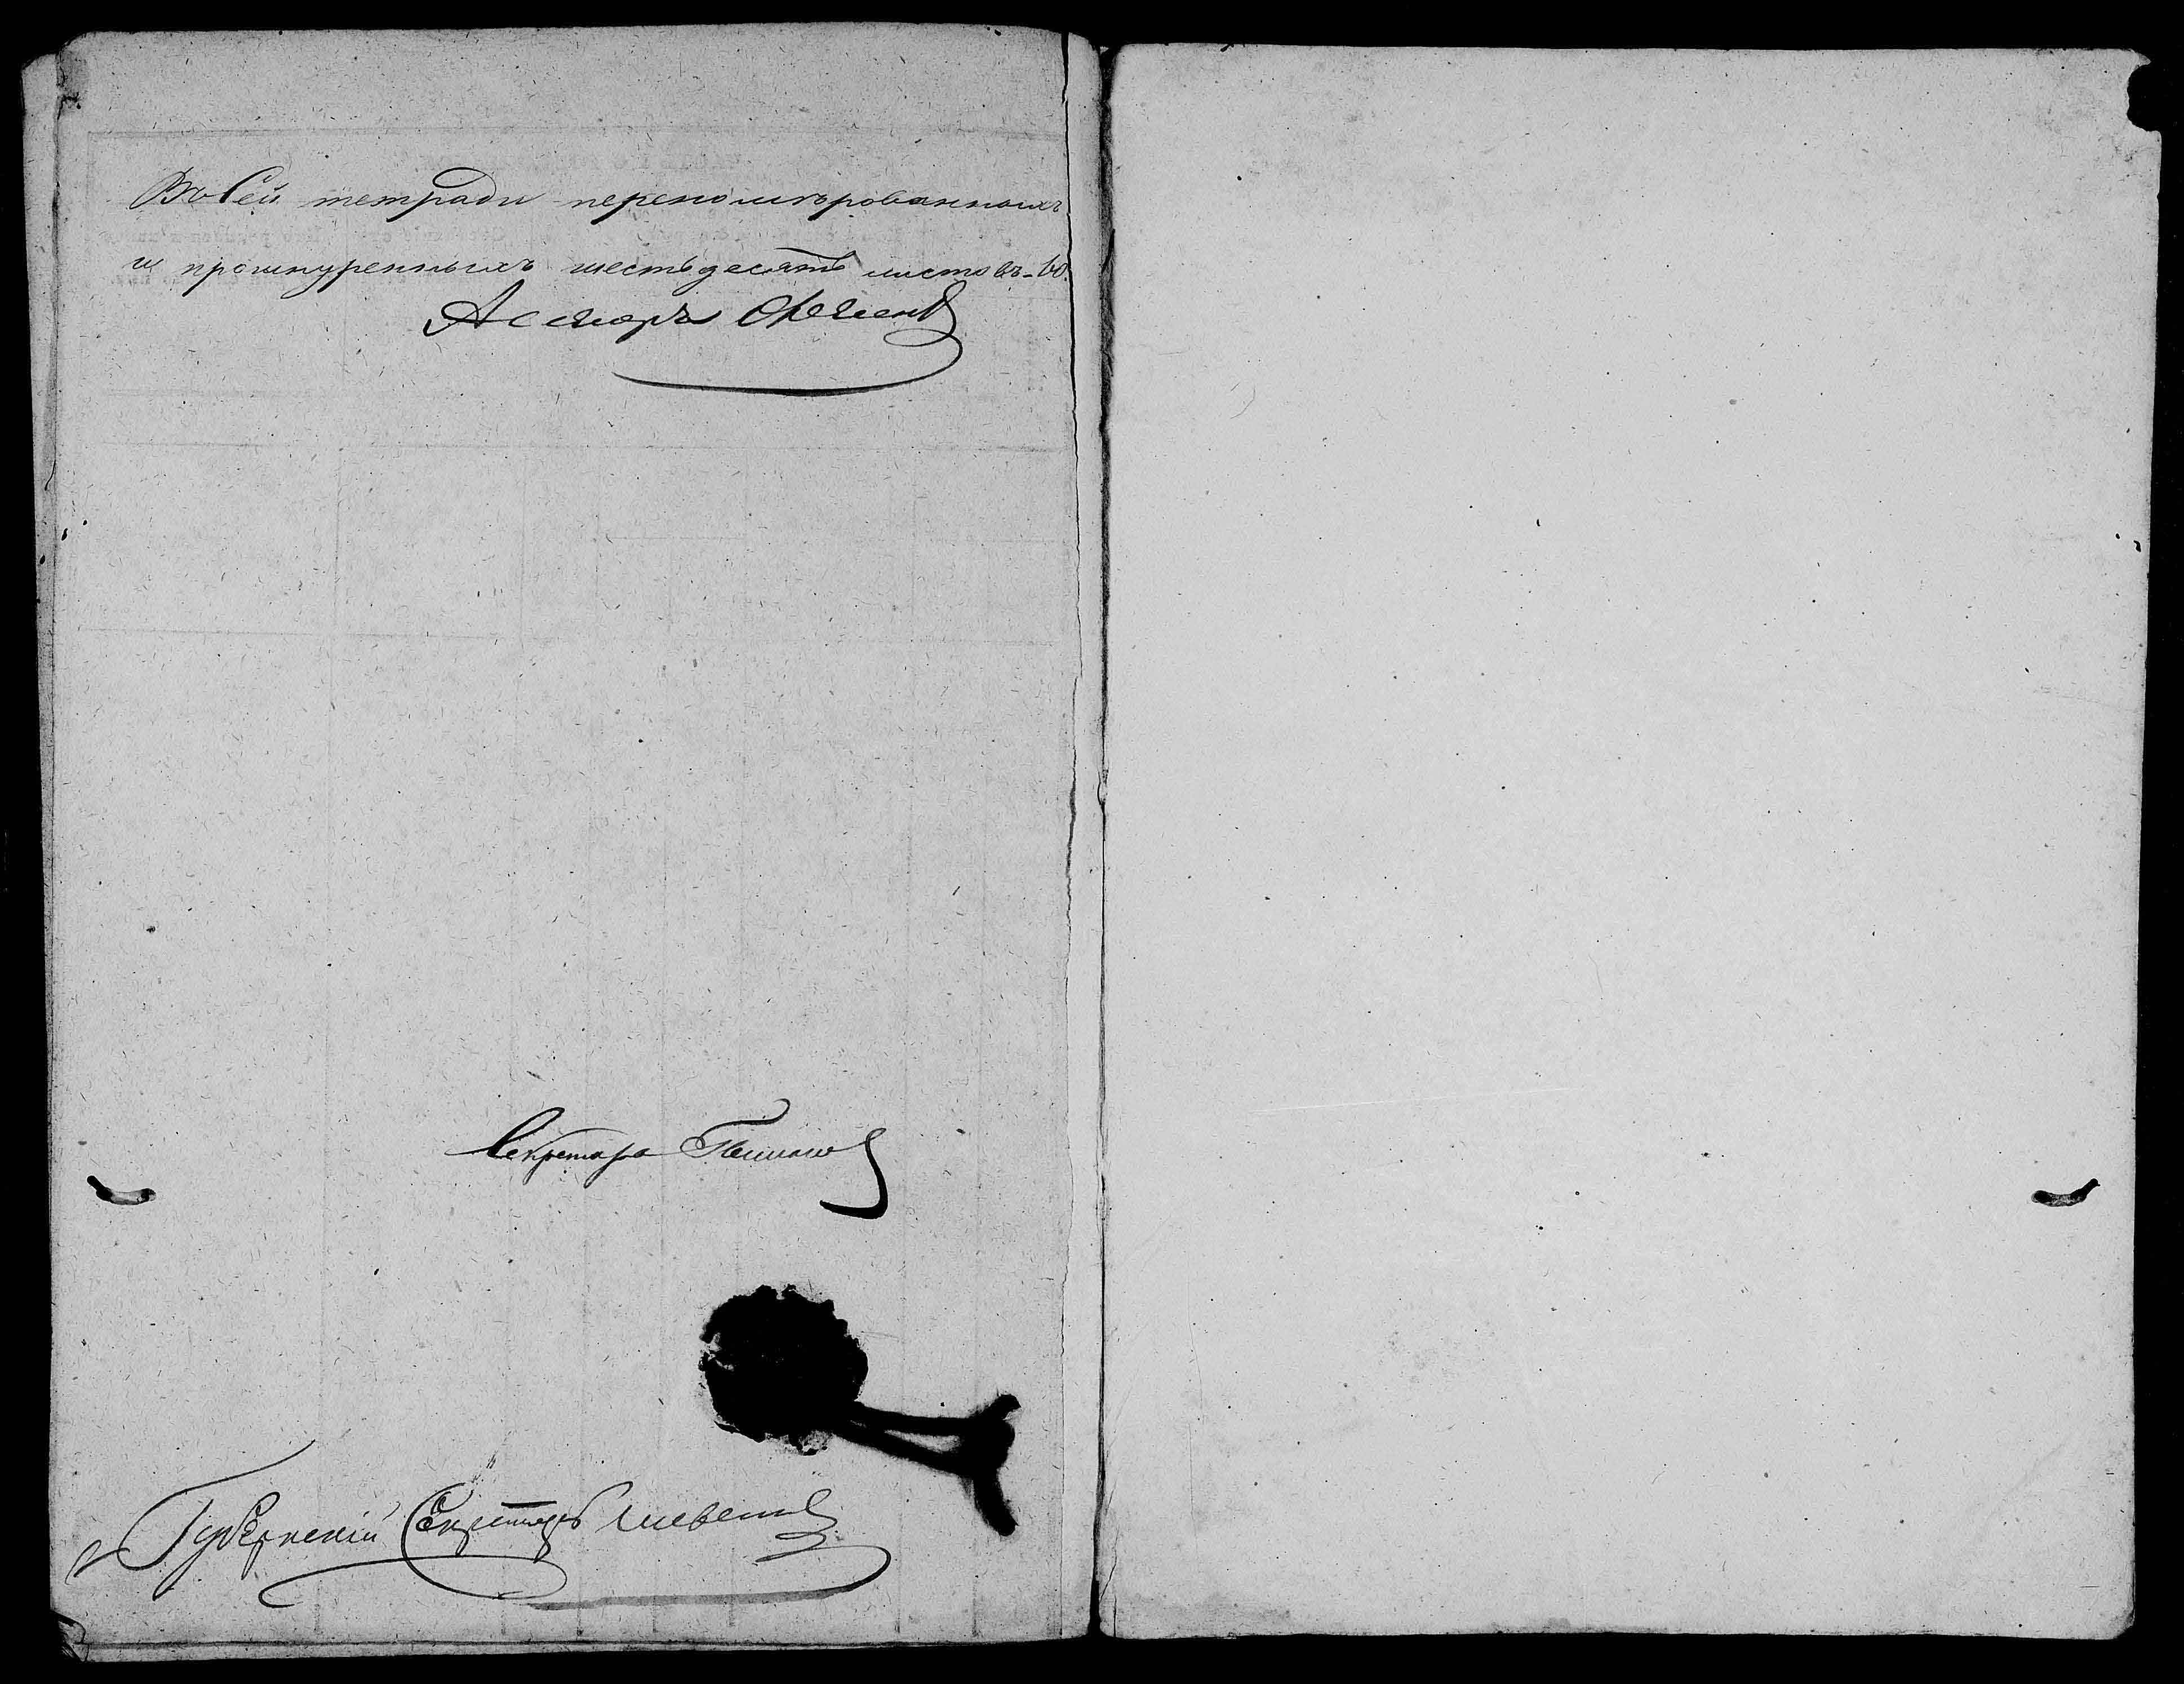 Въ Сей тетради переномѣрованныхъ
и прошнуренныхъ шестьдесятъ листовъ - 60.
Асесоръ
Секретарь
Губернскій Секретарь